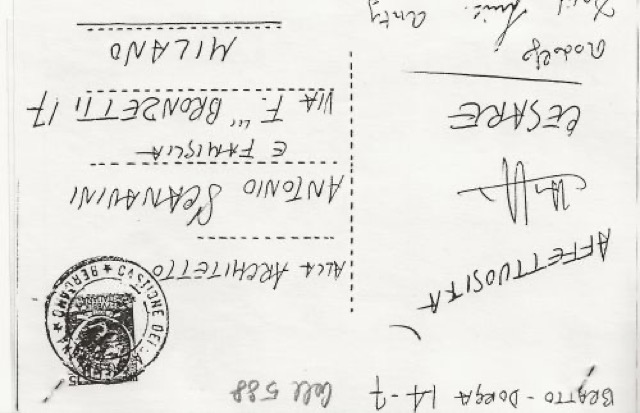 BRATTO - DORGA 14-7
Coll 588
AFFETTUOSITA
CESARE
Rodolfo
Anty
CASTIONE DELLA PRESOLANA * BERGAMO *
ALLA ARCHITETTO
ANTONIO SCARNAVINI
E FAMIGLIA
VIA F.lli BRONZETTI 17
MILANO